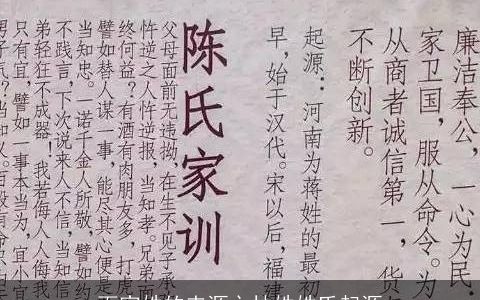 廉洁奉公,一心为民.
家卫国,服从命令。为
从商者诚信第一,货
不断创新。
起源:河南为蒋姓的最初
早,始于汉代。宋以后,福建
陈氏家训
父母面前无违拗,在生不见子承
忤逆之人忤逆报,当知孝。兄弟
终何益?有酒有肉朋友多,打虎
譬如替人谋一事,能尽其心便是
当知忠。一诺千金人所敬,譬如约
不践言,下次说来人不信,当知信
弟轻狂不成器!我若侮人人侮我
只有宜,譬如一事本当为,宜小宜
百家姓的来源之林姓姓氏起源